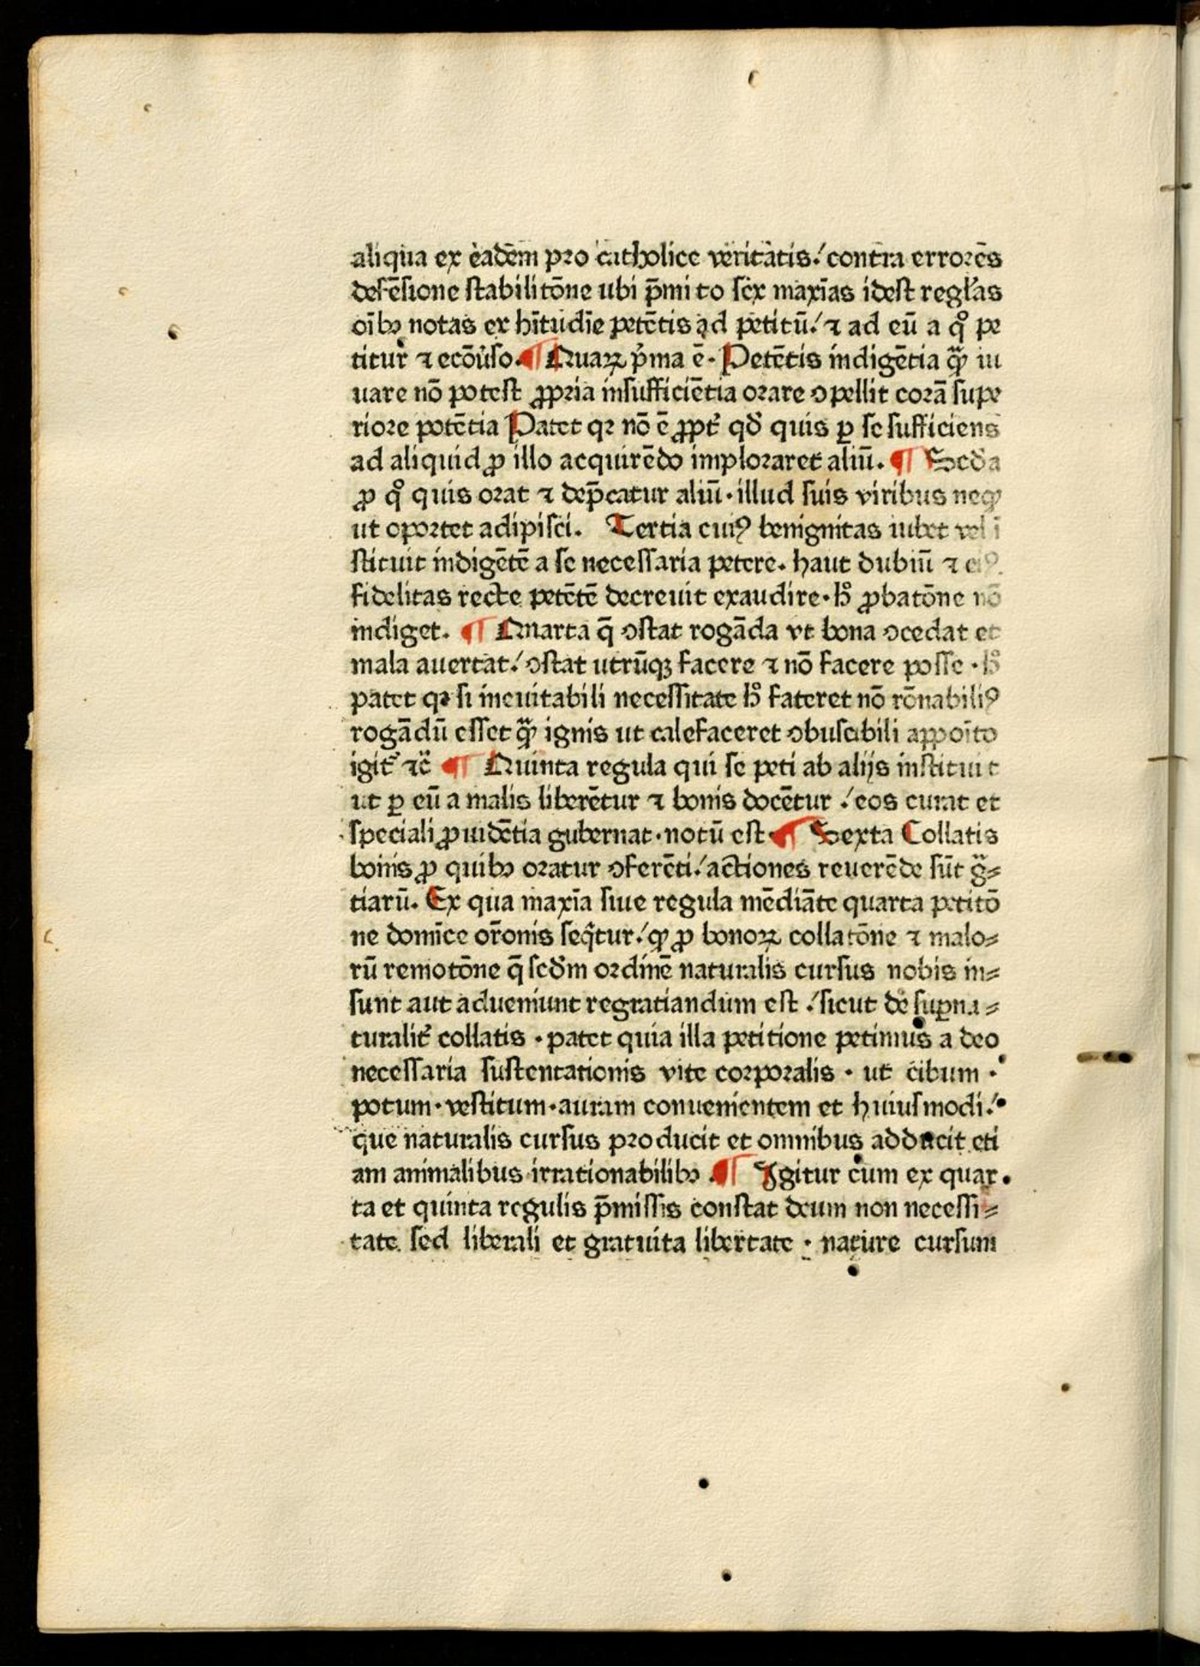 aliqua ex eadēm pro catholice veritatis ./ contra errorēs
defēsione stabilitōne ubi p̄mito sex maxīas idest regłas
oībꝫ notas ex hītudīe petētis ad petitū ./ ⁊ ad eū a qͦ pe
titur ⁊ ecōũso. ¶ Quaꝝ p̓ma ē · Petētis indigētia quā iu
uare nō potest ꝓpria insufficiētia orare ↄpellit corā supe
riore potētia Patet qꝛ nō ē ꝓpt̓ qđ quis ꝑ se sufficiens
ad aliquid ꝓ illo acquirēdo imploraret aliū. ¶ Secđa
ꝓ qͦ quis orat ⁊ dep̄catur aliū · illud suis viribus neqꝫ
ut oportet adipisci. Tertia cuiꝰ benignitas iubet vel ī
stituit indigētē a se necessaria petere · haut dubiū ⁊ eiꝰ
fidelitas recte petētē decreuit exaudire · hͦ ꝓbatōne nō
indiget. ¶ Quarta q̄ ↄstat rogāda vt bona ↄcedat et
mala auertat ./ ↄstat utrūqꝫ facere ⁊ nō facere posse · hͦ
patet qꝛ si ineuitabili necessitate hͦ faceret nō rōnabiliꝰ
rogādū esset quā ignis ut calefaceret ↄbusabili appoīto
igit̓ ⁊c̄ ¶ Quinta regula qui se peti ab alijs instituit
ut ꝑ eū a malis liberētur ⁊ bonis docētur ./ eos curat et
speciali ꝓuidētia gubernat · notū est ¶ Sexta Collatis
bonis ꝓ quibꝫ oratur ↄferēti ./ actiones reuerēde sūt gr̄a⸗
tiarū. Ex qua maxīa siue regula mēdiāte quarta petitō
ne domīce or̄onis seq̄tur ./ qꝫ ꝓ bonoꝝ collatōne ⁊ malo⸗
rū remotōne q̄ secđm ordinē naturalis cursus nobis in⸗
sunt aut adueniunt regratiandum est ./ sicut de suꝑna⸗
turalit̓ collatis · patet quia illa petitione petimus a deo
necessaria sustentationis vite corporalis · ut cibum ·
potum · vestitum · auram conuenientem et huiusmodi ./
que naturalis cursus producit et omnibus adducit eti
am animalibus irrationabilibꝫ . ¶ Igitur cum ex quar
ta et quinta regulis p̄missis constat deum non necessi⸗
tate sed liberali et gratuita libertate · nature cursum